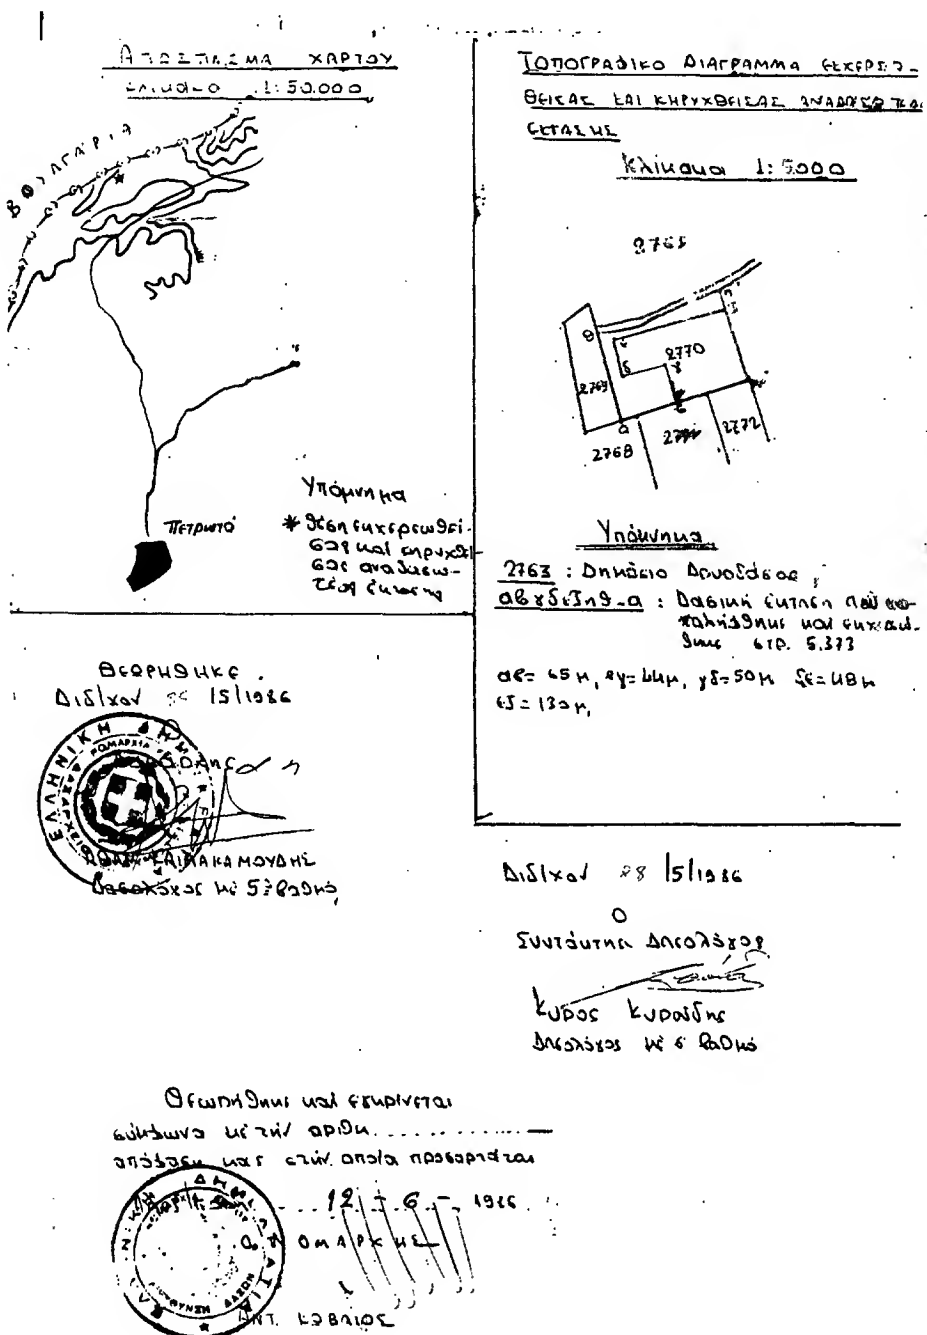 ΑΠΟΣΠΑΣΜΑ ΧΑΡΤΟΥ
1:50.000
ΒΟΥΛΓΑΡΙΑ
Πετρωτό
Υπόμνημα
* θέση εκχερσωθεί-
σας και κηρυχθεί-
σας αναδασω-
τέας έκτασης
ΤΟΠΟΓΡΑΦΙΚΟ ΔΙΑΓΡΑΜΜΑ ΕΚΧΕΡΣΩ-
ΘΕΙΣΑΣ ΚΑΙ ΚΗΡΥΧΘΕΙΣΑΣ ΑΝΑΔΑΣΩΤΕΑΣ
ΕΚΤΑΣΗΣ
Κλίμακα 1:5000
2763
2770
2769
2768
2772
Υπόμνημα
2763 : Δημόσιο Δρυοδάσος
αβγδεζηθ-α : Δασική έκταση που
και εκχερσώ-
θηκε στρ. 5.373
αβ= 65μ, βγ=44μ, γδ=50μ δε=48μ
εζ=130μ,
ΘΕΩΡΗΘΗΚΕ
Διδ/χον /5/1986
ΕΛΛΗΝΙΚΗ
ΝΟΜΑΡΧΙΑ
ΚΑΙΜΑΚΑΜΟΥΔΗΣ
Δασολόγος με 5º βαθμό
Διδ/χον 28/5/1986
Ο
Συντάκτης Δασολόγος
Κύρος Κυρούδης
Δασολόγος με βαθμό
Θεωρήθηκε και εγκρίνεται
σύμφωνα με την αριθ..............
απόφαση μας στην οποία προσαρτάται
12 - 6 - 1986
Ο ΝΟΜΑΡΧΗΣ
ΔΗΜΟΚΡΑΤΙΑ
ΔΙΕΥΘΥΝΣΗ ΔΑΣΩΝ
ΑΝΤ.